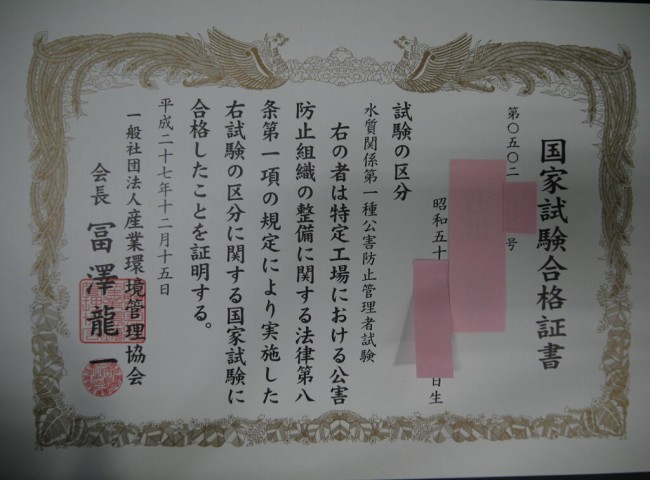 国家試験合格証書
第〇五〇二
号
昭和五十
日生
試験の区分
水質関係第一種公害防止管理者試験
右の者は特定工場における公害
防止組織の整備に関する法律第八
条第一項の規定により実施した
右試験の区分に関する国家試験に
合格したことを証明する。
平成二十七年十二月十五日
一般社団法人産業環境管理協会
会長 冨澤龍一